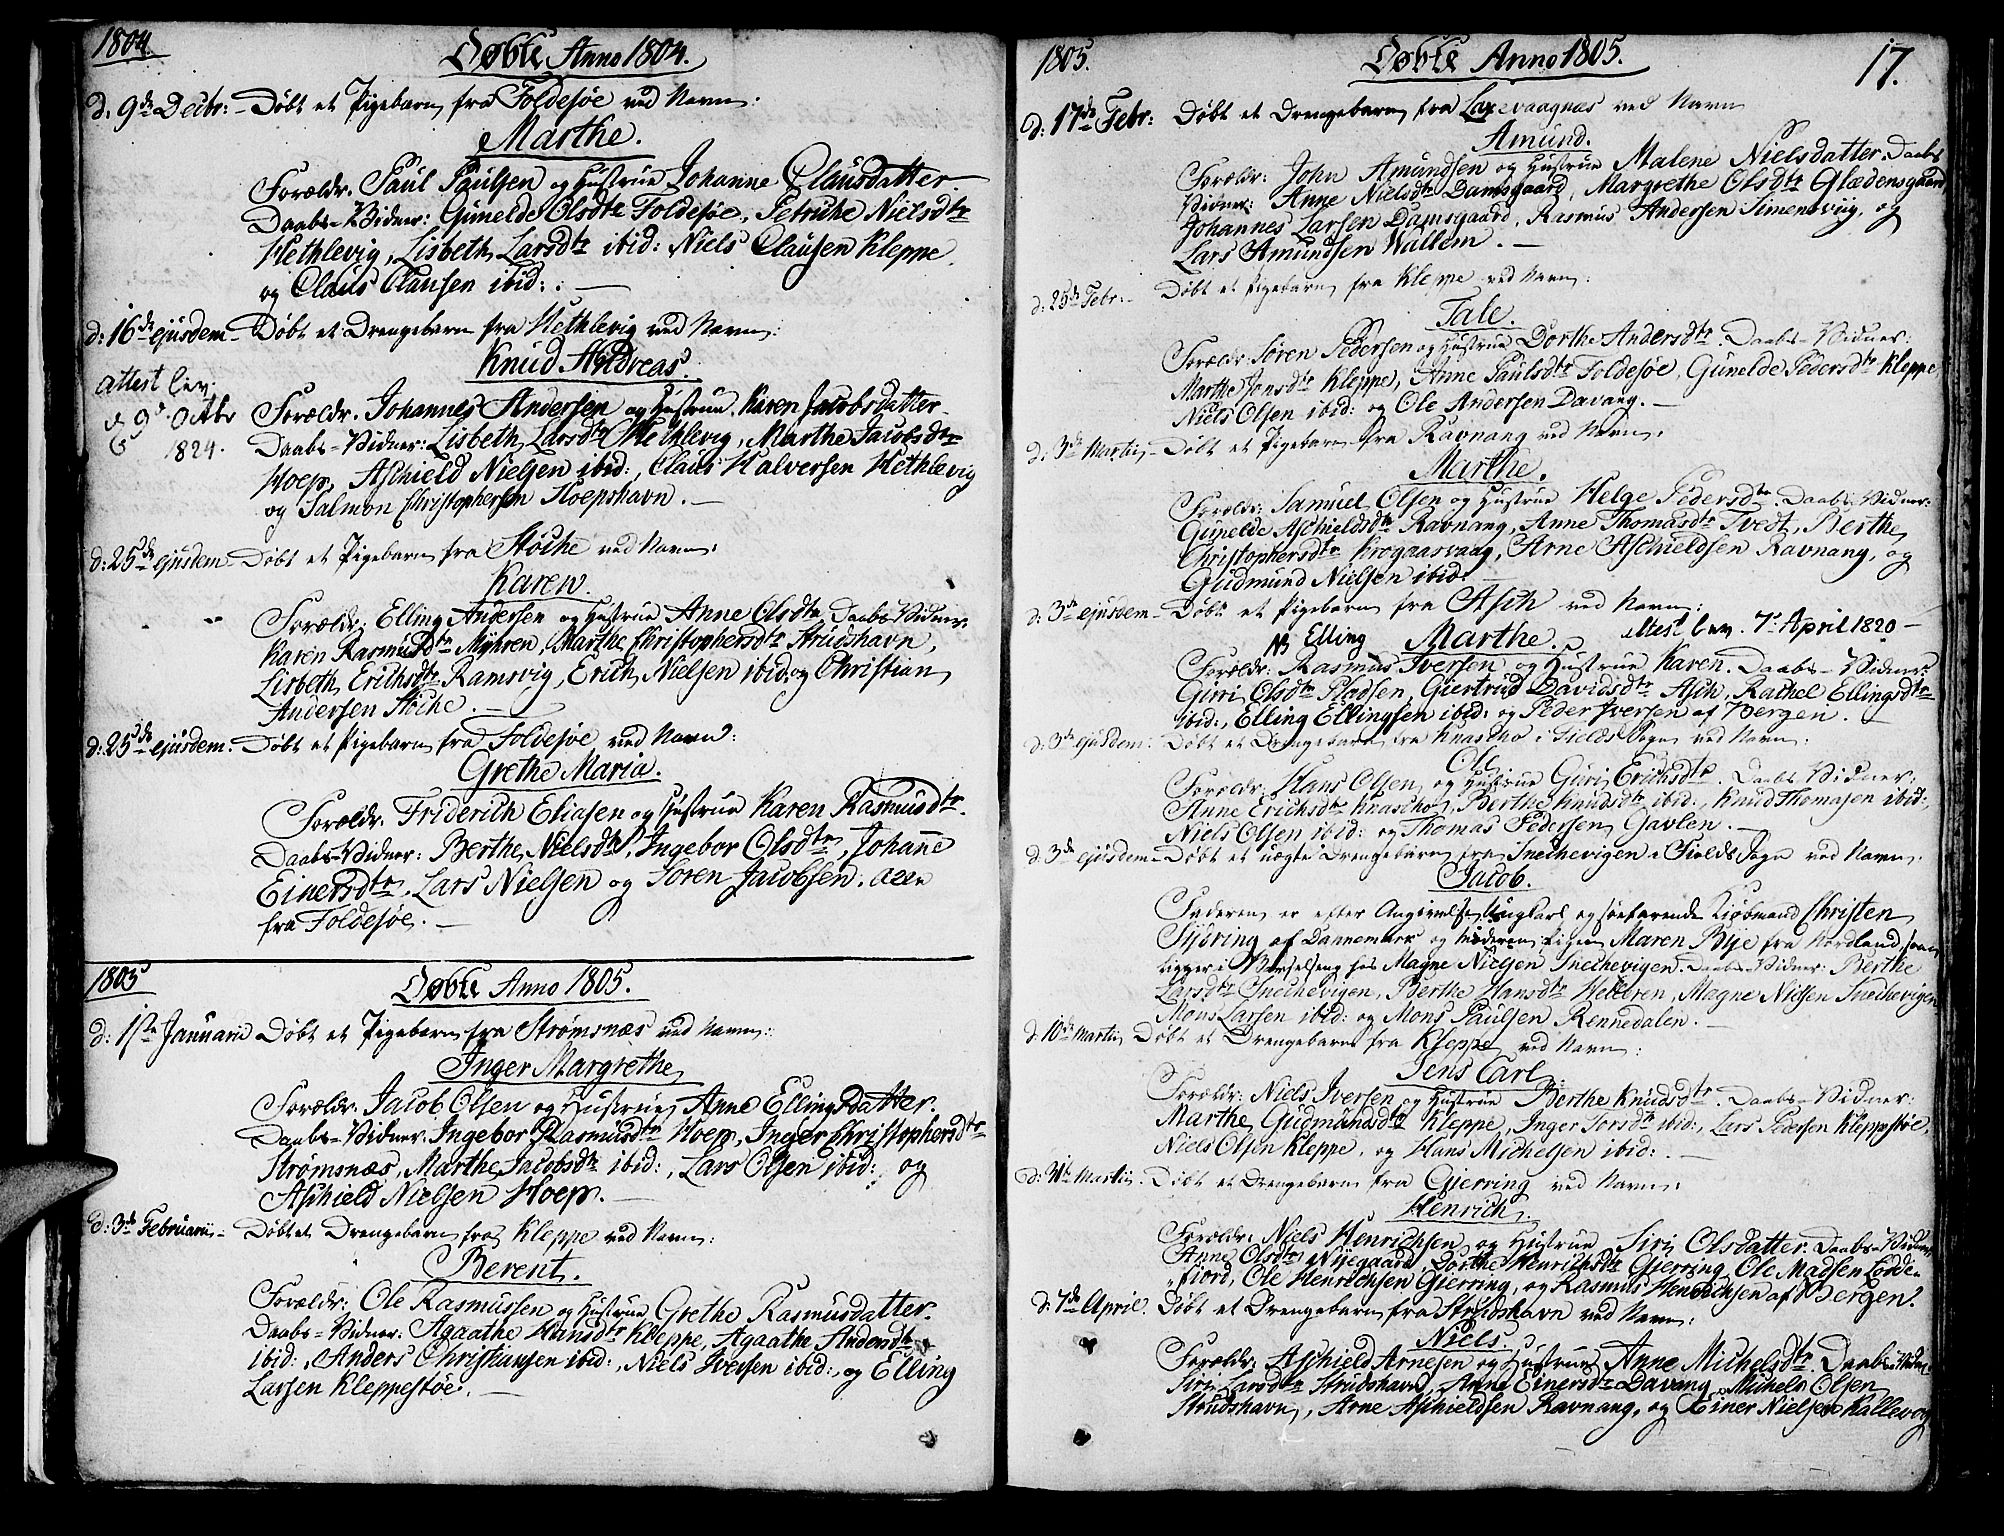 1804.
Døbte Anno 1804.
d: 9de Decbr: Døbt et Pigebarn fra Foldesøe ved Navn:
Marthe.
Forældr. Paul Paulsen og Hustrue Johanne Clausdatter.
Daabs-Vidner: Gunelde Olsdtr Foldesøe, Petriche Nielsdtr
Hethlevig, Lisbeth Larsdtr ibid: Niels Clausen Kleppe
og Claus Clausen ibid:
d: 16de ejusdem Døbt et Drengebarn fra Hethlevig ved Navn:
Knud Andreas.
attest lev.
d 9d Octbr
1824.
Forældr. Johannes Andersen og Hustrue Karen Jacobsdatter
Daabs-Vidner: Lisbeth Larsdtr Hethlevig, Marthe Jacobsdtr
Hoep, Aschield Nielsen ibid:, Claus Halversen Hethlevig
og Salmon Christophersen Hoepshavn.
d: 25de ejusdem Døbt et Pigebarn fra Høche ved Navn:
Karen.
Forældr: Elling Andersen og Hustrue Anne Olsdtr Daabs-Vidner
Karen Rasmusdtr Myhren, Marthe Christophersdtr Strudshavn,
Lisbeth Erichsdtr Ramsvig, Erich Nielsen ibid: og Christian
Andersen Høche.
d: 25de ejusdem. Døbt et Pigebarn fra Foldesøe ved Navn:
Grethe Maria.
Forældr. Friderich Eliasen og Hustrue Karen Rasmusdtr.
Daabs-Vidner: Berthe Nielsdtr, Ingebor Olsdtr, Johane
Einersdtr, Lars Nielsen og Søren Jacobsen, alle
fra Foldesøe.
1805
Døbte Anno 1805.
d: 1ste Januarii Døbt et Pigebarn fra Strømsnæs ved Navn:
Inger Margrethe
Forældr. Jacob Olsen og Hustrue Anne Ellingsdatter.
Daabs-Vidner: Ingebor Rasmusdtr Hoep, Inger Christophersdtr
Strømsnæs, Marthe Jacobsdtr ibid:, Lars Olsen ibid: og
Aschield Nielsen Hoep.
d: 3de Februarii Døbt et Drengebarn fra Kleppe ved Navn:
Berent.
Forældr: Ole Rasmussen og Hustrue Grethe Rasmusdatter.
Daabs-Vidner: Agaathe Hansdtr Kleppe, Agaathe Andersdtr
ibid:, Anders Christiansen ibid:, Niels Iversen ibid:, og Elling
Larsen Kleppestøe.
1805.
Døbte Anno 1805.
17.
d: 17de Febr: Døbt et Drengebarn fra Laxevaagnæs ved Navn
Amund.
Forældr: John Amundsen og Hustrue Malene Nielsdatter. Daabs
Vidner: Anne Nielsdtr Damsgaard, Margrethe Olsdtr Glædensgaard
Johannes Larsen Damsgaard, Rasmus Andersen Simensviig, og
Lars Amundsen Wallem.
d: 25de Febr: Døbt et Pigebarn fra Kleppe ved Navn:
Tale.
Forældr: Søren Pedersen og Hustrue Dorthe Andersdtr. Daabs-Vidner:
Marthe Jonsdtr Kleppe, Anne Paulsdtr Foldesøe, Gunelde Pedersdtr Kleppe,
Niels Olsen ibid: og Ole Andersen Davang.
d: 3de Martii Døbt et Pigebarn fra Ravnang ved Navn:
Marthe.
Forældr: Samuel Olsen og Hustrue Helge Pedersdtr Daabs-Vidner:
Gunelde Aschieldsdtr Ravnang, Anne Thomasdtr Tvedt, Berthe
Christophersdtr Krogaasvaag, Arne Aschieldsen Ravnang, og
Gudmund Nielsen ibid:
d: 3de ejusdem Døbt et Pigebarn fra Asch ved Navn:
NB Elling Marthe. Attest lev. 7d April 1820
Forældr: Rasmus Iversen og Hustrue Karen. Daabs-Vidner:
Giri Olsdtr Flodsen, Giertrud Davidsdtr Asch, Rachel Ellingsdtr
ibid:, Elling Ellingsen ibid: og Peder Iversen af Bergen.
d: 3de ejusdem: Døbt et Drengebarn fra Knascho i Fields Sogn ved Navn:
Ole
Forældr: Hans Olsen og Hustrue Guri Erichsdtr. Daabs Vidner:
Anne Erichsdtr Knascho, Berthe Knudsdtr ibid:, Knud Thomasen ibid:,
Niels Olsen ibid: og Thomas Pedersen Gavlen.
d: 3de ejusdem Døbt et uægte Drengebarn fra Snechevigen i Fields Sogn ved Navn:
Jacob.
Faderen er efter Angivelse Ungkarl og søefarende Kiøbmand Christen
Sydring af Dannemark og Moderen Pigen Maren Bye fra Nordland, som
ligger i Barselseng hos Magne Nielsen Snechevigen. Daabs-Vidner: Berthe
Larsdtr Snechevigen, Berthe Hansdtr Helleren, Magne Nielsen Snechevigen
Mons Larsen ibid: og Mons Paulsen Rennedalen.
d: 10de Martii Døbt et Drengebarn fra Kleppe ved Navn:
Jens Carl.
Forældr: Niels Iversen og Hustrue Berthe Knudsdtr. Daabs-Vidner:
Marthe Gudmundsdtr Kleppe, Inger Torsdtr ibid:, Lars Pedersen Kleppestøe,
Niels Olsen Kleppe, og Hans Michelsen ibid:.
d: 31te Martii. Døbt et Drengebarn fra Gierring ved Navn:
Henrich.
Forældr: Niels Henrichsen og Hustrue Siri Olsdatter. Daabs-Vidner
Anne Olsdtr Nyegaard, Dorthe Henrichsdtr Gierring, Ole Madsen Lodde-
fiord, Ole Henrichsen Gierring, og Rasmus Henrichsen af Bergen.
d: 7de April. Døbt et Drengebarn fra Strudshavn ved Navn:
Niels.
Forældr: Aschield Arnesen og Hustrue Anne Michelsdtr. Daabs-Vidn:
Siri Larsdtr Strudshavn, Anne Einersdtr Davang, Michel Olsen
Strudshavn, Arne Aschieldsen Ravnang, og Einer Nielsen Kallevog